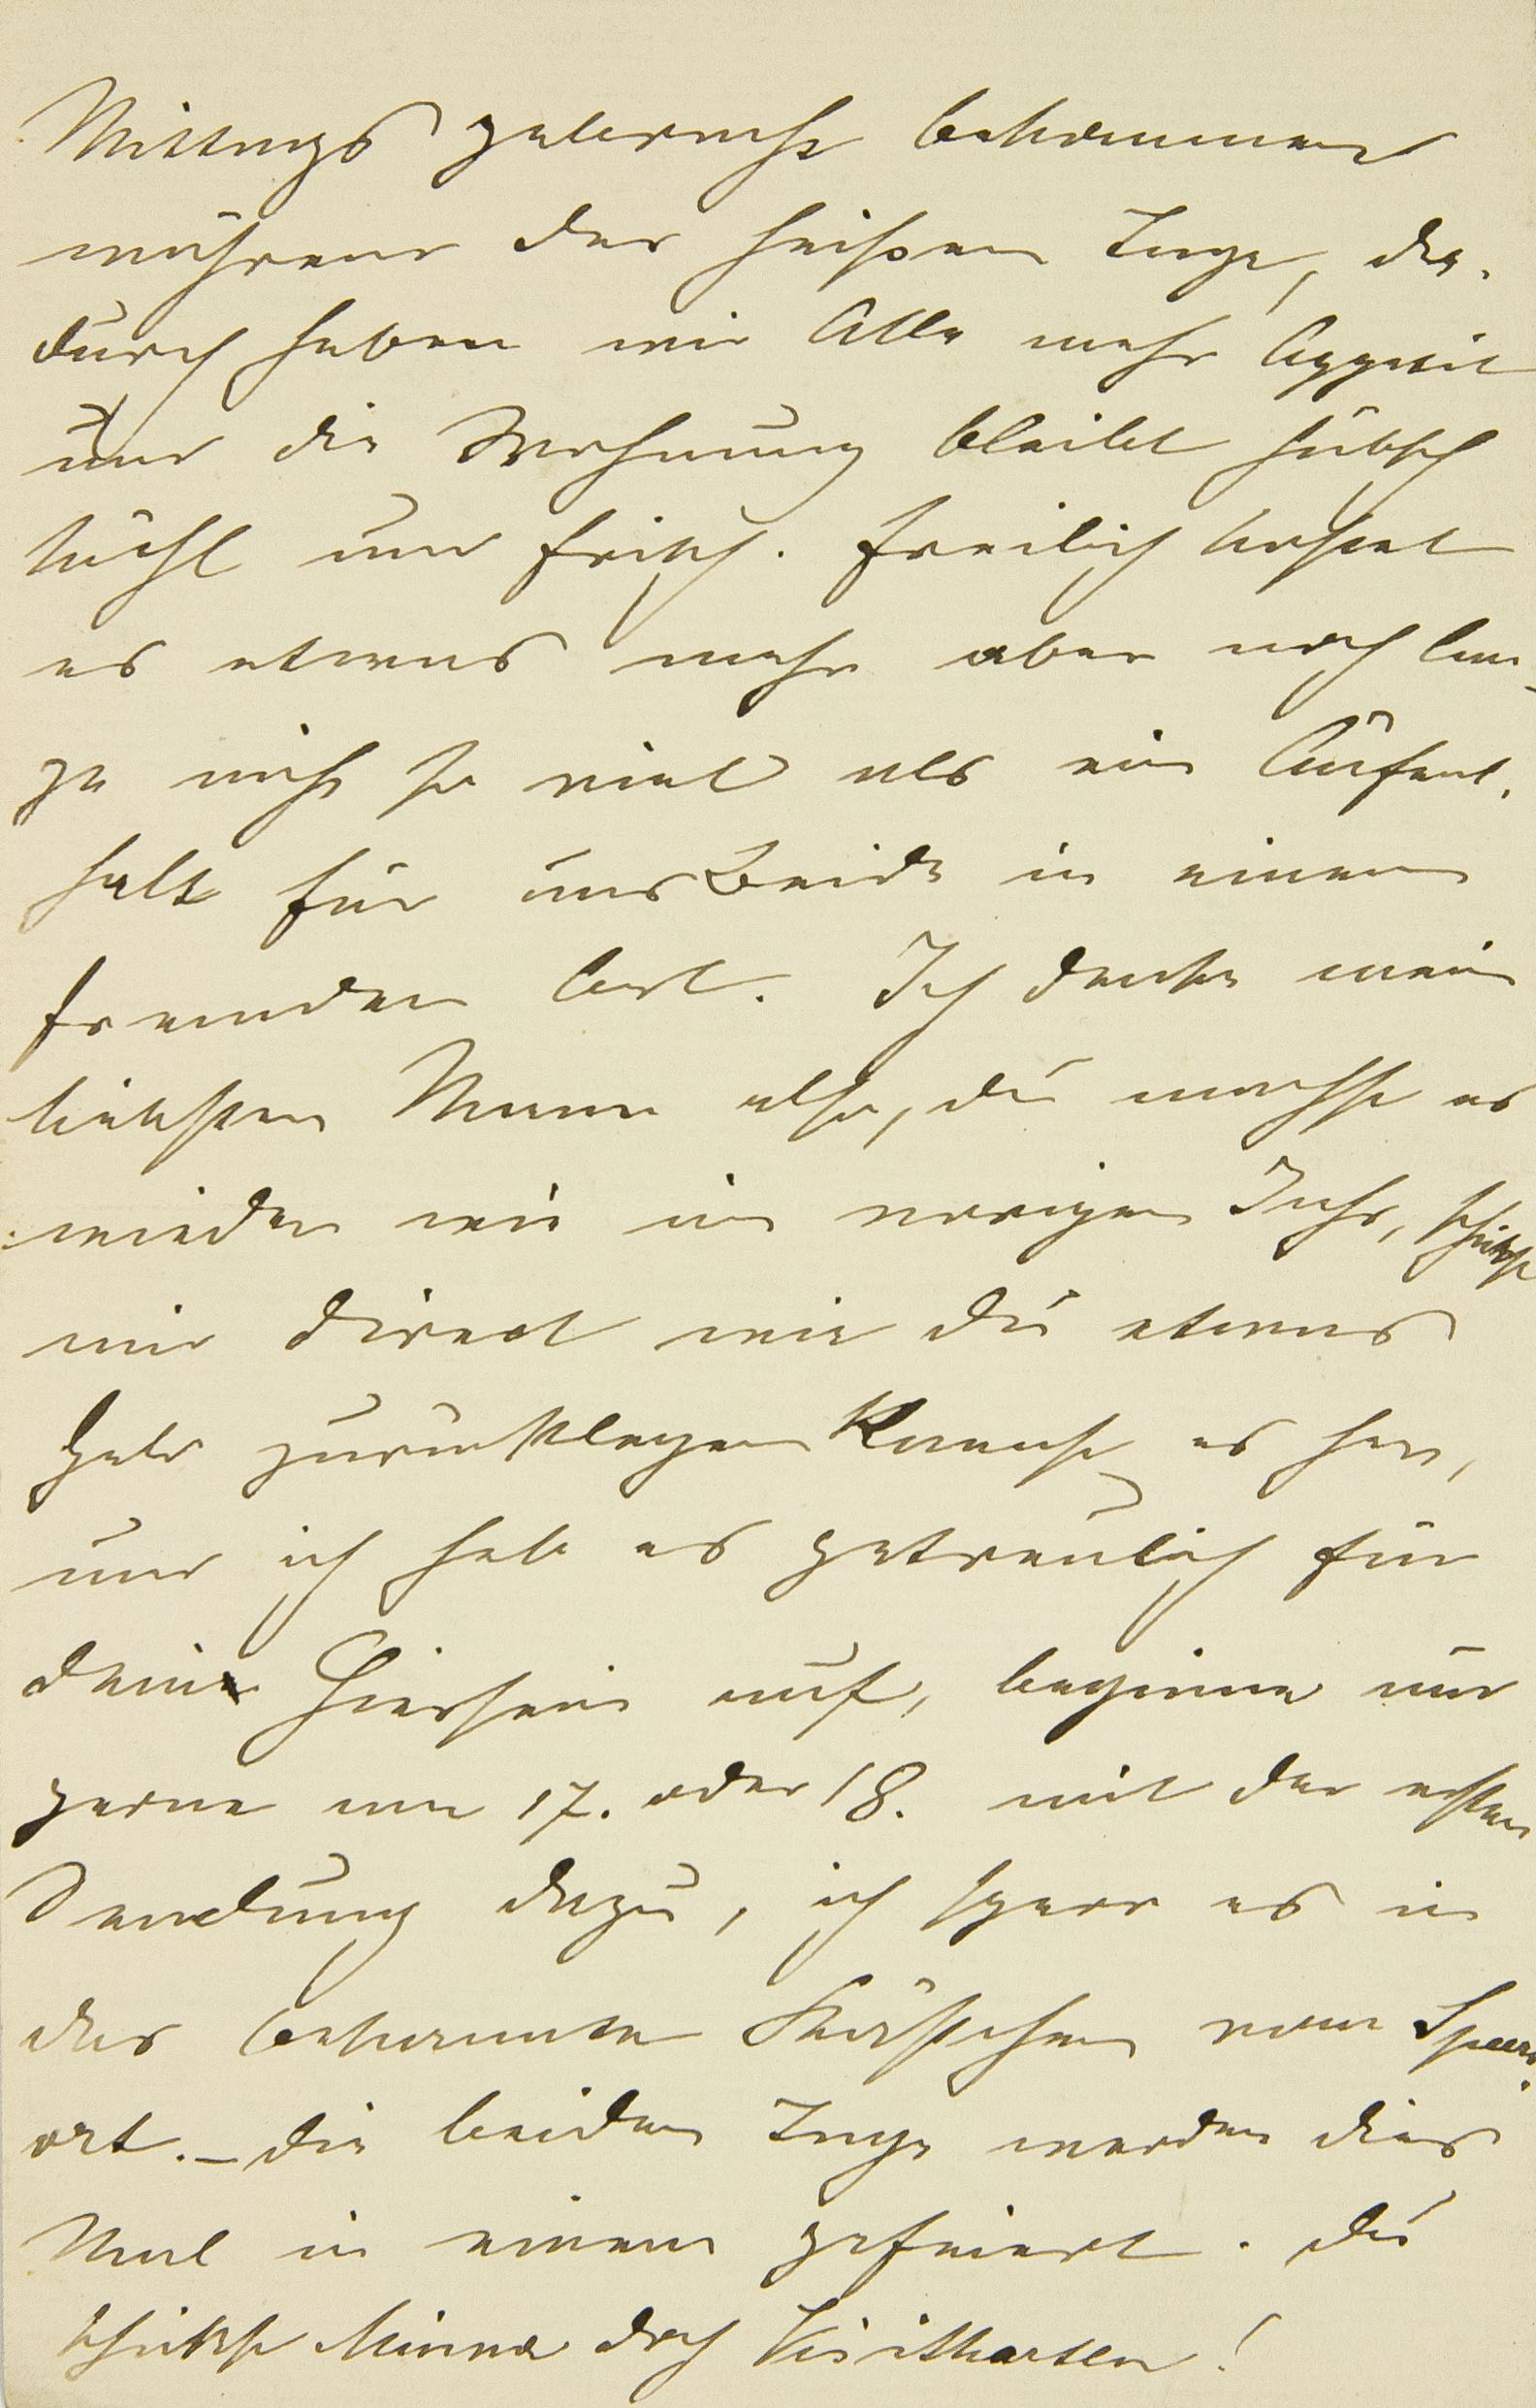 Mittags gebracht bekommen
während der heißen Tage, da-
durch haben wir Alle mehr Appetit
und die Wohnung bleibt hübsch
kühl und frisch. Freilich kostet
es etwas mehr aber noch lan-
ge nicht so viel als ein Aufent-
halt für uns Beide in einem
fremden Ort. Ich denke mein
liebster Mann also, du machst es
wieder wie im vorigen Jahr, schickst
mir direct wie du etwas
Geld zurücklegen kannst es her,
und ich heb es getreulich für
dein Hiersein auf, beginne nur
gerne am 17. oder 18. mit der ersten
Sendung dazu, ich sperr es in
das bekannte Kästchen vom
ort. – die beiden Tage werden dies
Mal in einem gefeiert. Du
schickst Minna doch Visitkarten!